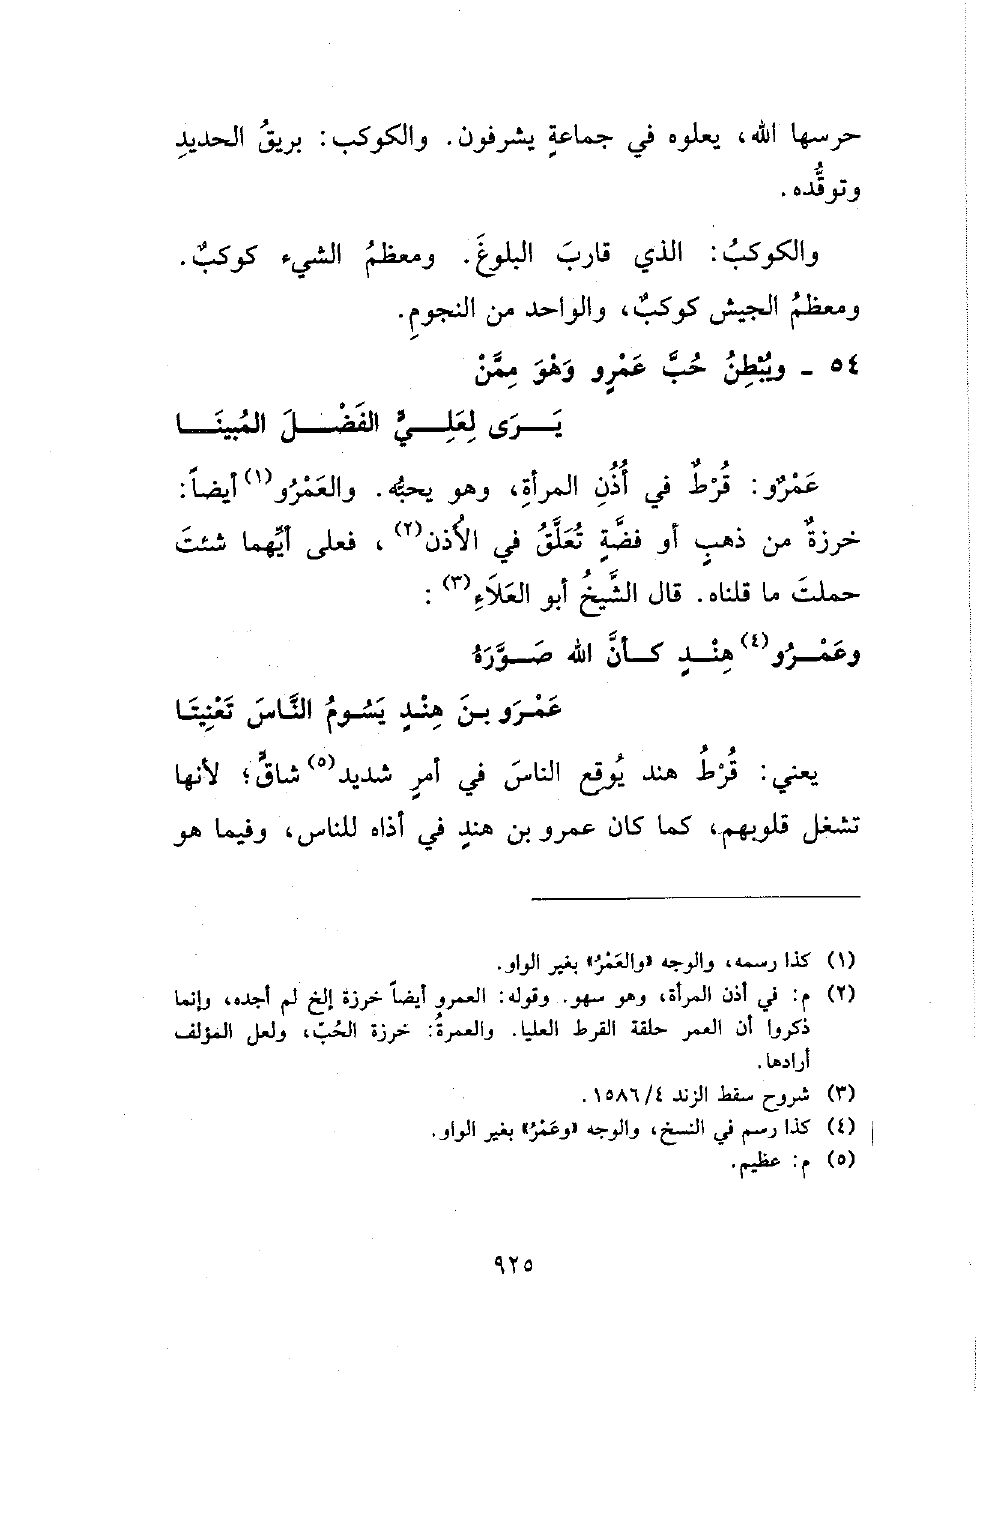 حرسها الله، يعلوه في جماعةٍ يشرفون. والكوكب: بريقُ الحديدِ
وتوقُّده.
والكوكبُ: الذي قاربَ البلوغَ. ومعظمُ الشيء كوكبٌ.
ومعظمُ الجيش كوكبٌ، والواحد من النجومِ.
٥٤ ـ ويُبْطِنُ حُبَّ عَمْرٍو وَهْوَ مِمَّنْ
يَـــرَى لِعَلِـــيٍّ الفَضْـــلَ المُبينَـــا
عَمْرٌو: قُرْطٌ في أُذُنِ المرأةِ، وهو يحبُّه. والعَمْرُو(١) أيضاً:
خرزةٌ من ذهبٍ أو فضَّةٍ تُعَلَّقُ في الأذن(٢)، فعلى أيِّهما شئتَ
حملتَ ما قلناه. قال الشَّيخُ أبو العَلَاءِ(٣):
وعَمْـرُو(٤) هِنْـدٍ كـأنَّ الله صَـوَّرَهُ
عَمْرَو بنَ هِنْدٍ يَسُومُ النَّاسَ تَعْنِيتَا
يعني: قُرْطُ هند يُوقع الناسَ في أمرٍ شديد(٥) شاقٍّ؛ لأنها
تشغل قلوبهم، كما كان عمرو بن هندٍ في أذاه للناس، وفيما هو
(١) كذا رسمه، والوجه «والعَمْرُ» بغير الواو.
(٢) م: في أذن المرأة، وهو سهو. وقوله: العمرو أيضاً خرزة إلخ لم أجده، وإنما
ذكروا أن العمر حلقة القرط العليا. والعمرةُ: خرزة الحُبّ، ولعل المؤلف
أرادها.
(٣) شروح سقط الزند ٤/ ١٥٨٦.
(٤) كذا رسم في النسخ، والوجه «وعَمْرُ» بغير الواو.
(٥) م: عظيم.
٩٢٥